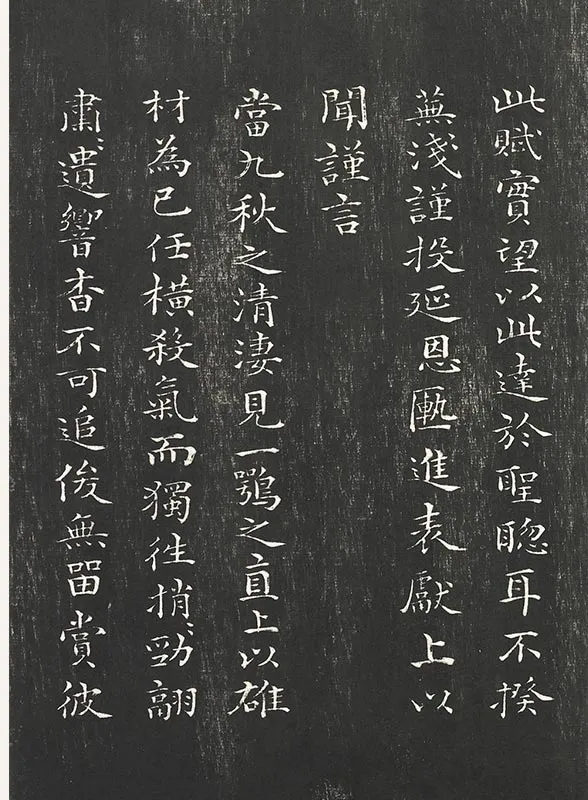 此賦實望以此達於聖聦耳不揆
蕪淺謹投延恩匭進表獻上以
聞謹言
當九秋之清淒見一鶚之直上以雄
材為已任橫殺氣而獨往捎〻勁翮
肅〻遺響杳不可追俊無留賞彼